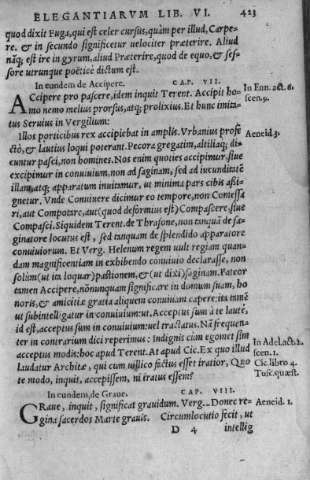 ELEGANTIARVM LIB. VI. 423
quod dixit Fuga, qui est celer cursus, quàm per illud, Carpe-
re, & in secundo significetur uelociter præterire. Aliud
nāq; est ire in gyrum, aliud Præterire, quod de equo, & ses-
sore utrunque poëticè dictum est.
In eundem de Accipere. CAP. VII.
ACcipere pro pascere, idem inquit Terent. Accipit ho-
mo nemo melius prorsus, atq; prolixius. Et hunc imita-
tus Seruius in Vergilium:
In Eun. act. 6.
scen. 9.
Illos porticibus rex accipiebat in amplis. Vrbanius profe
ctò, & lautius loqui poterant. Pecora gregatim, altiliaq; di-
cuntur pasci, non homines. Nos enim quoties accipimur, siue
excipimur in conuiuium, non ad saginam, sed ad iucunditatē
illam, atq; apparatum inuitamur, ut minima pars cibis aßi-
gnetur. Vnde Conuiuere dicimur eo tempore, non Comessa
ri, aut Compotare, aut (quod deformius est) Compascere, siue
Compasci. Siquidem Terent. de Thrasone, non tanquā de sa-
ginatore locutus est, sed tanquam de splendido apparatore
conuiuiorum. Et Verg. Helenum regem uult regiam quan-
dam magnificentiam in exhibendo conuiuio declarasse, non
solùm (ut ita loquar) pastionem, & (ut dixi) saginam. Fateor
tamen Accipere, nōnunquam significare in domum suam, ho
noris, & amicitiæ gratia aliquem conuiuam capere: ita tamē
ut subintelligatur in conuiuium: ut Acceptus sum à te lautè,
id est, acceptus sum in conuiuium: uel tractatus. Nā frequen-
ter in contrarium dici reperimus: Indignis cùm egomet sim
acceptus modis: hoc apud Terent. At apud Cic. Ex quo illud
Laudatur Architæ, qui cum uillico factus esset iratior, Quo
te modo, inquit, accepissem, ni iratus essem?
Aeneid. 3.
In Adel. act. 2.
scen. 1.
Cic. libro 4.
Tusc. quæst.
In eundem, de Graue. CAP. VIII.
GRaue, inquit, significat grauidum. Verg. Donec re-
gina sacerdos Marte grauis. Circumlocutio fecit, ut
Aeneid. 1.
D 4 intellig